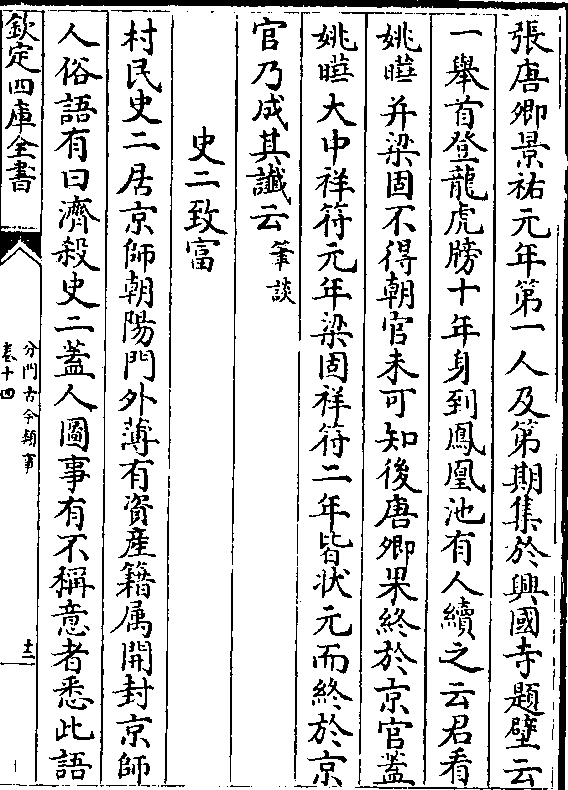 張唐卿景祐元年第一人及第期集於興國寺題壁云
一舉首登龍虎牓十年身到鳳凰池有人續之云君看
姚曄并梁固不得朝官未可知後唐卿果終於京官蓋
姚曄大中祥符元年梁固祥符二年皆狀元而終於京
官乃成其讖云筆談
史二致富
村民史二居京師朝陽門外薄有資産籍属開封京師
人俗語有曰濟殺史二蓋人圖事有不稱意者悉此語
欽定四庫全書
分門古今類事
卷十四
十二